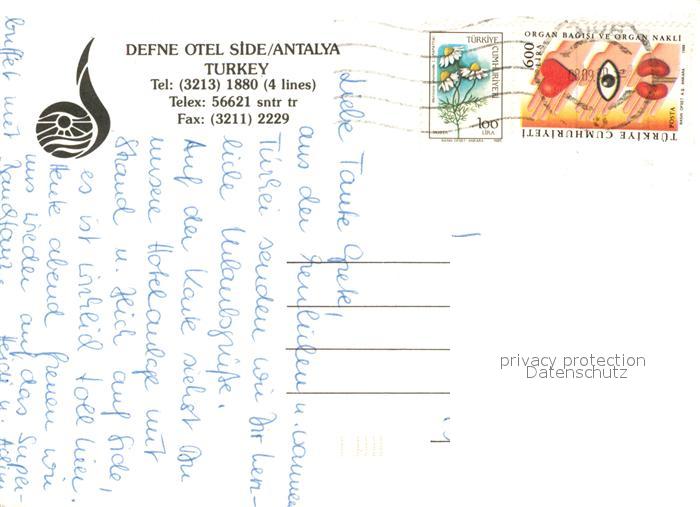 DEFNE OTEL SİDE/ANTALYA
TURKEY
Tel: (3213) 1880 (4 lines)
Telex: 56621 sntr tr
Fax: (3211) 2229
TÜRKİYE
CUMHURİYETİ
100
LİRA
ORGAN BAĞIŞI VE ORGAN NAKLİ
600
LİRA
POSTA
TÜRKİYE CUMHURİYETİ
Liebe Tante Grete!
aus der herrlichen u. warmen
Türkei senden wir Dir herz-
liche Urlaubsgrüße.
Auf der Karte siehst Du
unsere Hotelanlage mit
Strand u. Blick auf Side,
es ist wirklich toll hier.
Heute abend freuen wir
uns wieder auf das Super-
buffet mit
privacy protection
Datenschutz